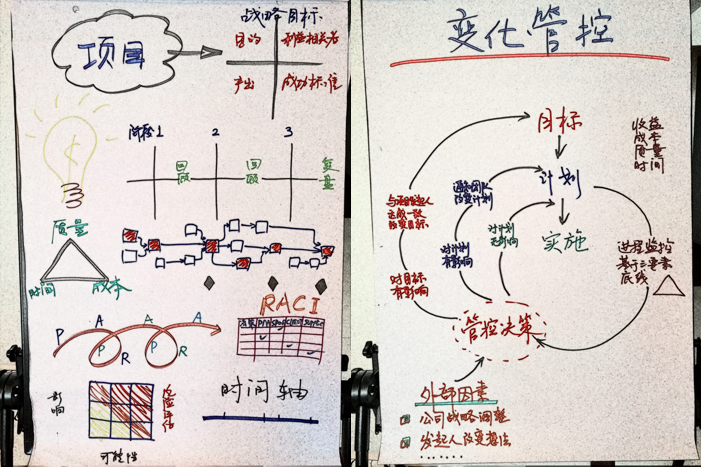 项目
战略目标
目的 利益相关者
产出 成功标准
阶段1 2 3
回顾 回顾 复盘
质量
时间 成本
RACI
P A A A
R P R
影响
可能性
时间轴
变化管控
目标
计划
实施
收益
成本
质量
时间
与项目发起人
达成一致
改变目标
通知团队
改变计划
对计划
无影响
对计划
有影响
对目标
有影响
过程监控
基于三要素
底线
管控决策
外部因素
公司战略调整
发起人改变想法
……